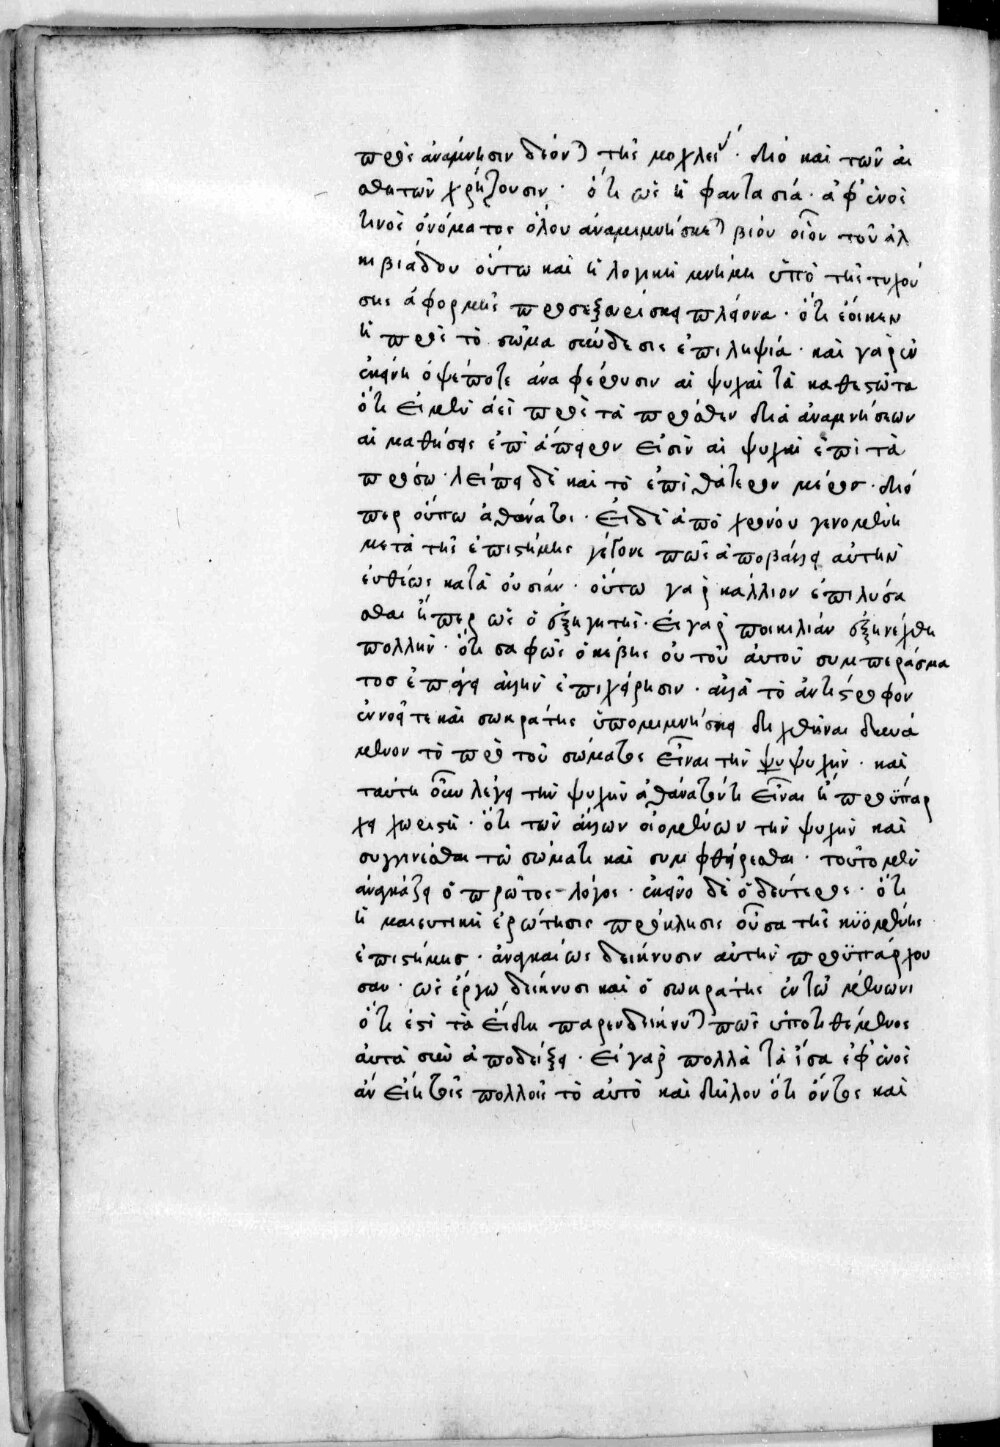 πρὸς ἀνάμνησιν δέονται τῆς μοχλείας· διὸ καὶ τῶν αἰ
σθητῶν χρήζουσιν· ὅτι ὡς ἡ φαντασία· ἀφ' ἑνός
τινος ὀνόματος ὅλου ἀναμιμνήσκεται βίου οἷον τοῦ ἀλ
κιβιάδου οὕτω καὶ ἡ λογικὴ μνήμη ὑπὸ τῆς τυχού
σης ἀφορμῆς προσεξευρίσκει πλείονα· ὅτι ἔοικεν
ἡ πρὸς τὸ σῶμα σύνδεσις ἐπιληψία· καὶ γὰρ ἐν
ἐκείνη ὀψέποτε ἀναφέρουσιν αἱ ψυχαὶ τὰ καθεστῶτα
ὅτι εἰ μὲν ἀεὶ πρὸς τὰ πρόσθεν διὰ ἀναμνήσεων
αἱ μαθήσεις ἐπ' ἄπειρον εἰσὶν αἱ ψυχαὶ ἐπὶ τὰ
πρόσω· λείπει δὲ καὶ τὸ ἐπὶ θάτερον μέρος· διό
περ οὔπω ἀθάνατοι· εἰ δὲ ἀπὸ χρόνου γενομένη
μετὰ τῆς ἐπιστήμης γέγονε πῶς ἀποβάλλει αὐτὴν
εὐθέως κατὰ οὐσίαν· οὕτω γὰρ κάλλιον ἐπιλύσα
σθαι ἤπερ ὡς ὁ ἐξηγητής· εἰ γὰρ ποικιλίαν ἐξηνέχθη
πολλήν· ὅτι σαφῶς ὁ κέβης οὐ τοῦ αὐτοῦ συμπεράσμα
τος ἐπάγει ἄλλην ἐπιχείρησιν· ἀλλὰ τὸ ἀντίστροφον
ἐννοεῖ τε καὶ σωκράτης ὑπομιμνήσκει δειχθῆναι δυνά
μενον τὸ πρὸ τοῦ σώματος εἶναι τὴν ψυ ψυχήν· καὶ
ταύτη οὖν λέγει τὴν ψυχὴν ἀθάνατόν τι εἶναι ἢ προϋπάρ
χει χωριστή· ὅτι τῶν ἄλλων οἰομένων τὴν ψυχὴν καὶ
συγγίνεσθαι τῶ σώματι καὶ συμφθείρεσθαι· τοῦτο μὲν
ἀνασκευάζει ὁ πρῶτος λόγος· ἐκεῖνο δὲ ὁ δεύτερος· ὅτι
ἡ μαιευτικὴ ἐρώτησις πρόκλησις οὖσα τῆς κυομένης
ἐπιστήμης· ἀναγκαίως δείκνυσιν αὐτὴν προϋπάρχου
σαν· ὡς ἔργω δείκνυσι καὶ ὁ σωκράτης ἐν τῶ μένωνι
ὅτι ἐστὶ τὰ εἴδη παρενδείκνυται πῶς ὑποτιθέμενος
αὐτὰ σὺν ἀποδείξει· εἰ γὰρ πολλὰ τὰ ἴσα ἐφ' ἑνὸς
ἂν εἴη τοῖς πολλοῖς τὸ αὐτὸ καὶ δῆλον ὅτι ὄντος καὶ